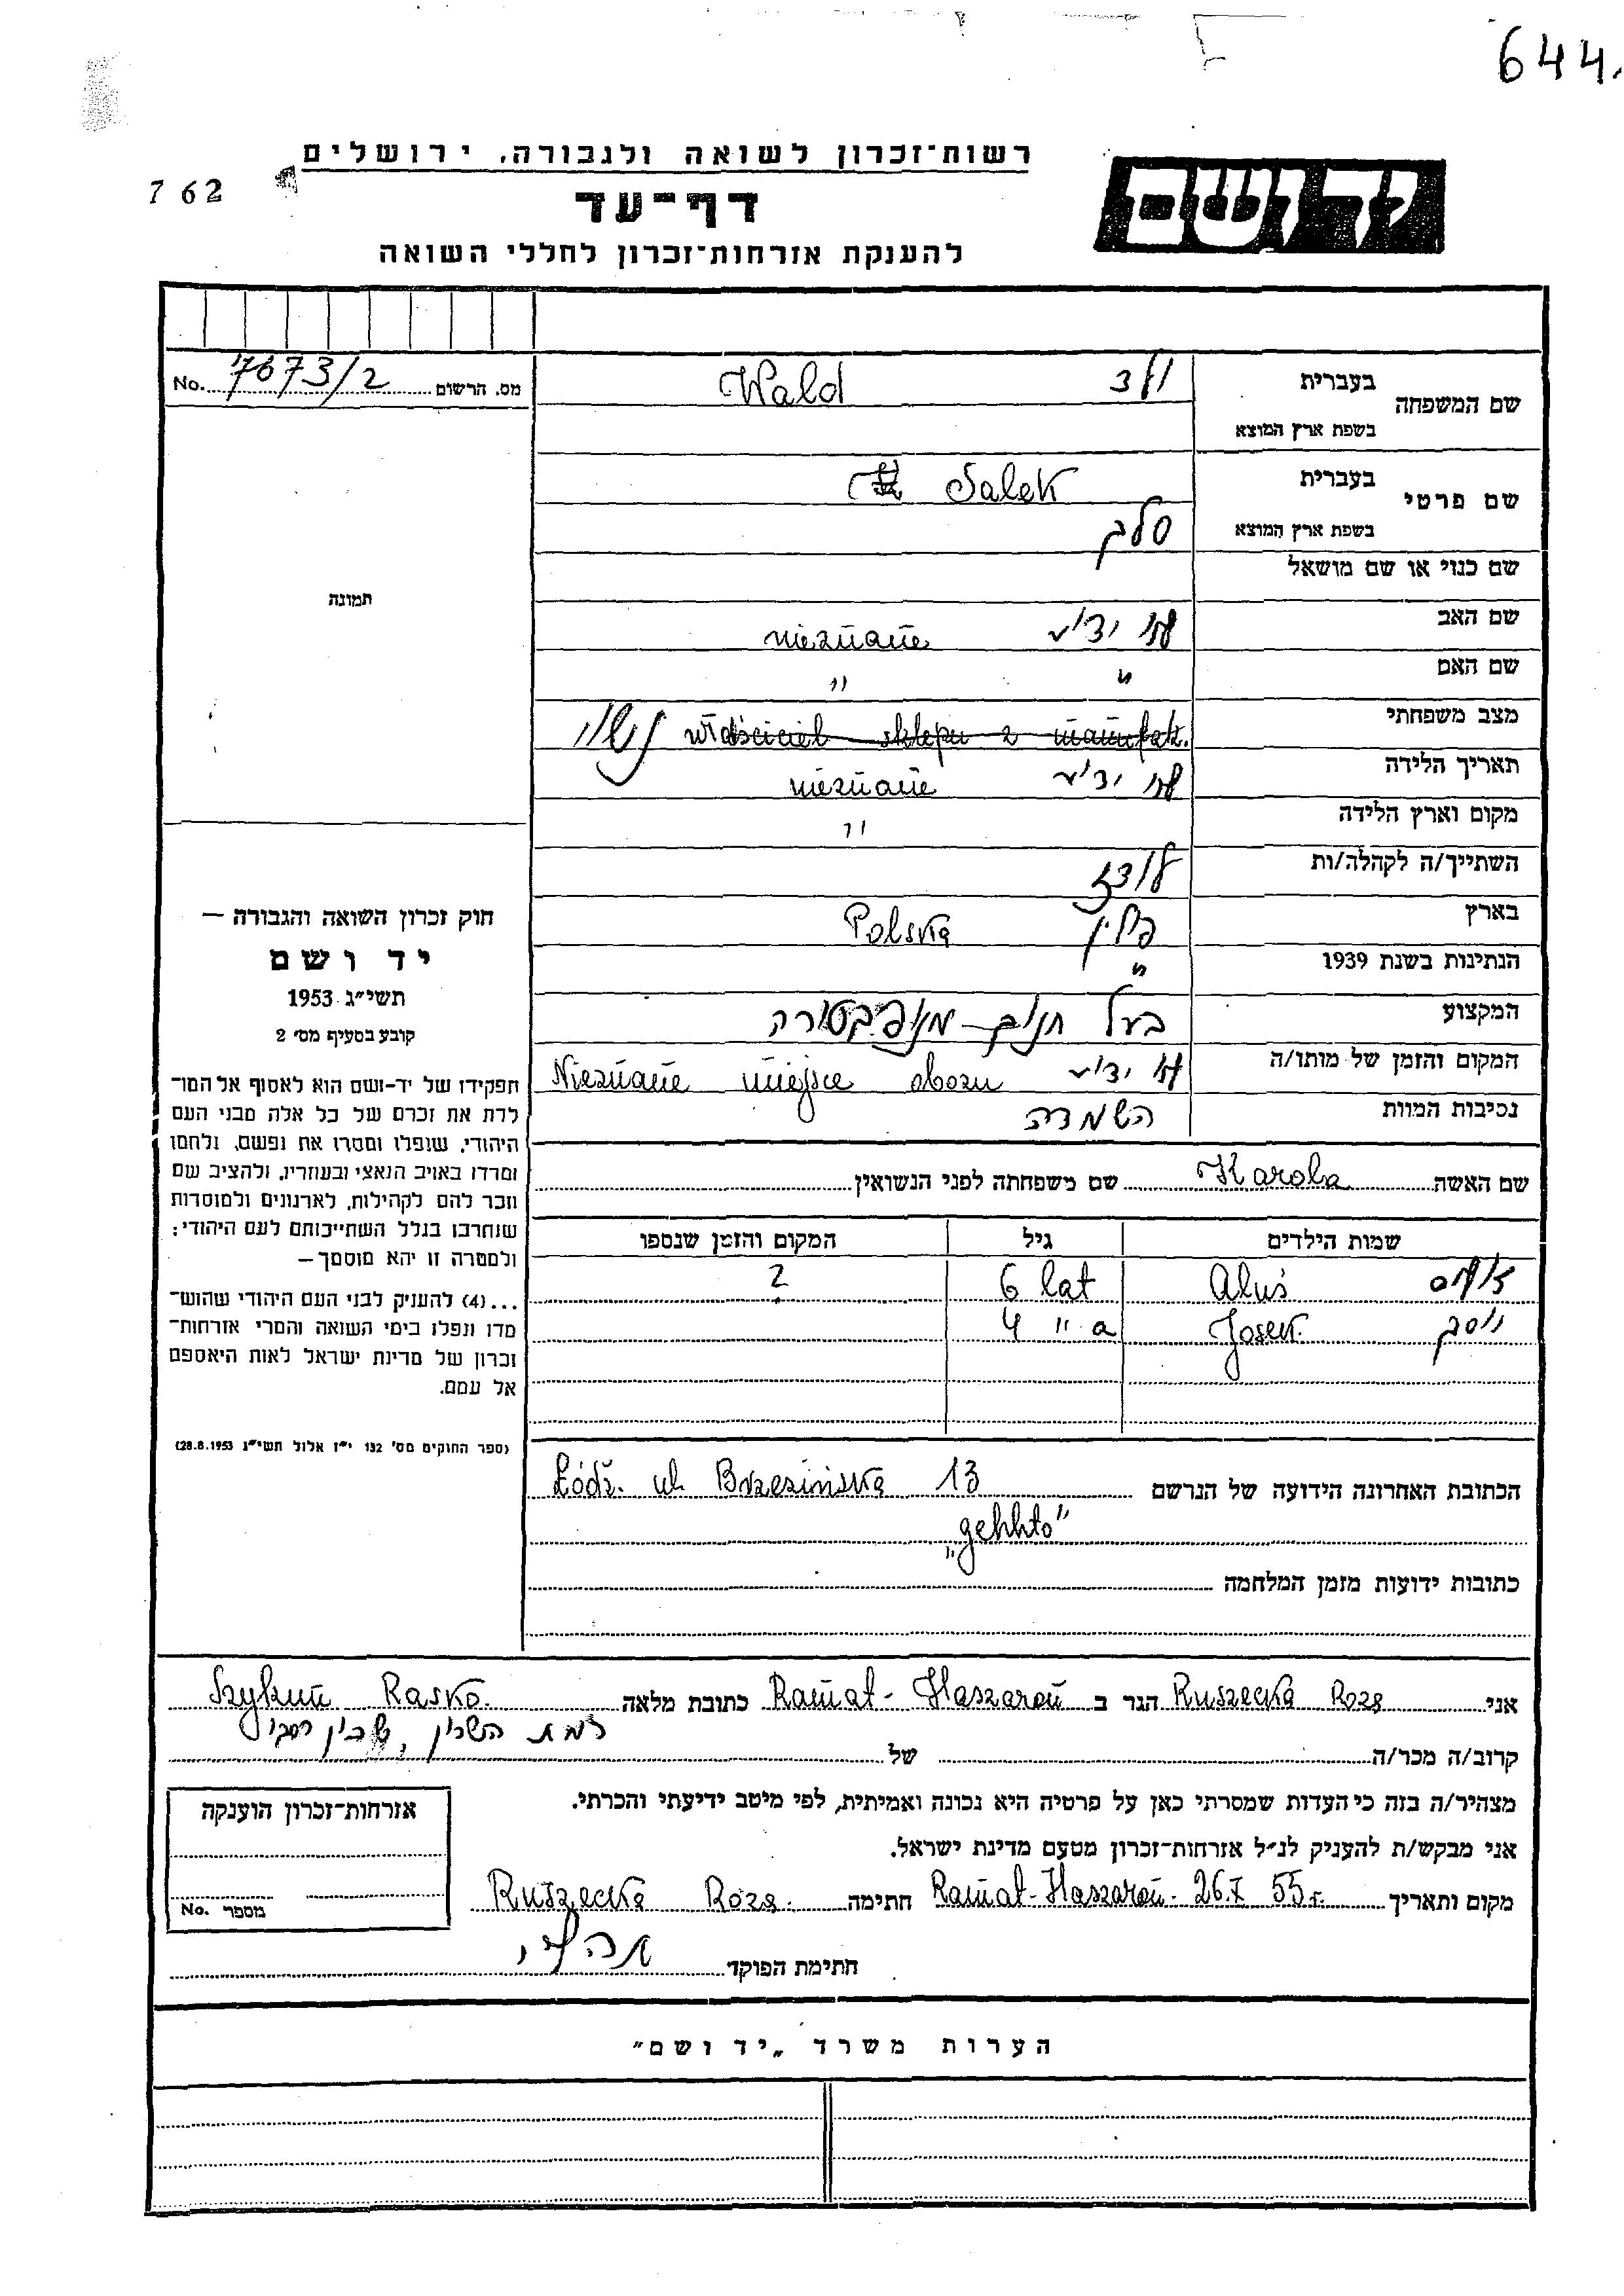 644.
רשות־זכרון לשואה ולגבורה, ירושלים
יד ושם
7 62
דף־עד
להענקת אזרחות־זכרון לחללי השואה
מס. הרשום 7673/2 No.
שם המשפחה בעברית ולד Wald
בשפת ארץ המוצא
שם פרטי בעברית Salek
בשפת ארץ המוצא סלק
שם כנוי או שם מושאל
תמונה
שם האב אי ידיע nieznane
שם האם " "
מצב משפחתי właściciel sklepu z manufakt. נשוי
תאריך הלידה אי ידיע nieznane
מקום וארץ הלידה "
השתייך/ה לקהלה/ות לודז
בארץ פולין Polska
הנתינות בשנת 1939 "
המקצוע בעל חנות-מנופקטורה
המקום והזמן של מותו/ה אי ידיע Nieznane miejsce obozu
נסיבות המוות השמדה
שם האשה Karola שם משפחתה לפני הנשואין
שמות הילדים גיל המקום והזמן שנספו
Aluś 6 lat ?
יוסק Josek. 4 " a
חוק זכרון השואה והגבורה —
יד ושם
תשי״ג 1953
קובע בסעיף מס׳ 2
תפקידו של יד-ושם הוא לאסוף אל המו־
לדת את זכרם של כל אלה מבני העם
היהודי, שנפלו ומסרו את נפשם, ולחמו
ומרדו באויב הנאצי ובעוזריו, ולהציב שם
וזכר להם לקהילות, לארגונים ולמוסדות
שנחרבו בגלל השתייכותם לעם היהודי;
ולמטרה זו יהא מוסמך—
...(4) להעניק לבני העם היהודי שהוש־
מדו ונפלו בימי השואה והמרי אזרחות־
זכרון של מדינת ישראל לאות היאספם
אל עמם.
(ספר החוקים מס׳ 132 י״ז אלול תשי״ג 28.8.1953)
הכתובת האחרונה הידועה של הנרשם Łódź. ul. Brzezińska 13
„gehhto”
כתובות ידועות מזמן המלחמה
אני Ruszecka Roza הגר ב Ramat-Haszaron כתובת מלאה Szykun Rasko.
רמת השרון, שכון רסקו
קרוב/ה מכר/ה של
מצהיר/ה בזה כי העדות שמסרתי כאן על פרטיה היא נכונה ואמיתית, לפי מיטב ידיעתי והכרתי.
אני מבקש/ת להעניק לנ״ל אזרחות־זכרון מטעם מדינת ישראל.
מקום ותאריך Ramat-Haszaron- 26.X 55 r. חתימה Ruszecka Roza.
חתימת הפוקד
אזרחות־זכרון הוענקה
מספר No.
הערות משרד „יד ושם״